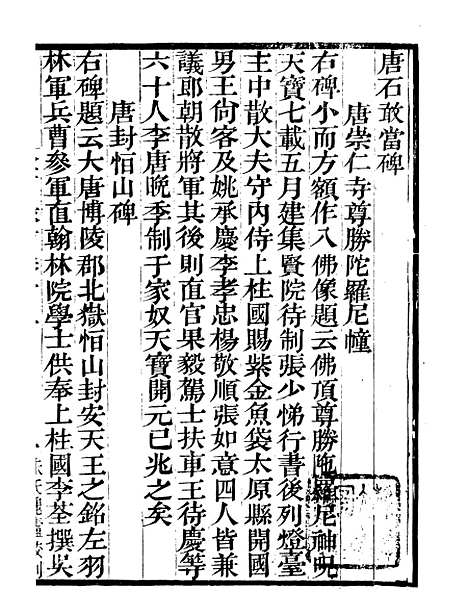 唐石敢當碑
唐崇仁寺尊勝陀羅尼幢
右碑小而方額作八佛像題云佛頂尊勝陁羅尼神呪
天寶七載五月建集賢院待制張少悌行書後列燈臺
主中散大夫守內侍上柱國賜紫金魚袋太原縣開國
男王尙客及姚承慶李孝忠楊敬順張如意四人皆兼
議郎朝散將軍其後則直官果毅駕士扶車王待慶等
六十人李唐晚季制于家奴天寶開元已兆之矣
唐封恒山碑
右碑題云大唐博陵郡北嶽恒山封安天王之銘左羽
林軍兵曹參軍直翰林院學士供奉上柱國李荃撰吳